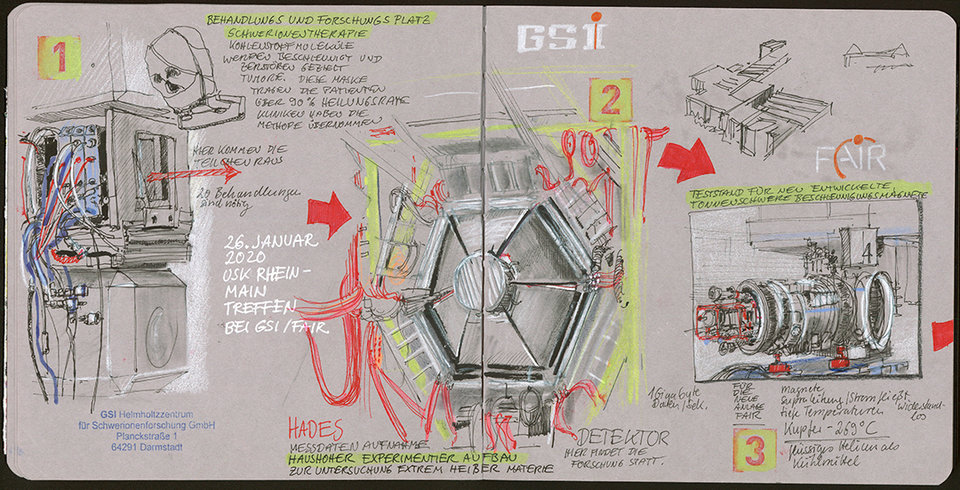 1
BEHANDLUNGS UND FORSCHUNGS PLATZ
SCHWERIONENTHERAPIE
KOHLENSTOFFMOLEKÜLE
WERDEN BESCHLEUNIGT UND
ZERSTÖREN GEZIELT
TUMORE. DIESE MASKE
TRAGEN DIE PATIENTEN
ÜBER 90% HEILUNGSRATE
KLINIKEN HABEN DIE
METHODE ÜBERNOMMEN
HIER KOMMEN DIE
TEILCHEN RAUS
20 Behandlungen
sind nötig
26. JANUAR
2020
USK RHEIN-
MAIN
TREFFEN
BEI GSI/FAIR
GSI Helmholtzzentrum
für Schwerionenforschung GmbH
Planckstraße 1
64291 Darmstadt
GSI
2
HADES
MESSDATEN AUFNAHME
HAUSHOHER EXPERIMENTIER AUFBAU
ZUR UNTERSUCHUNG EXTREM HEIßER MATERIE
1 Gigabyte
Daten/sek.
DETEKTOR
HIER FINDET DIE
FORSCHUNG STATT.
FAIR
TESTSTAND FÜR NEU ENTWICKELTE
TONNENSCHWERE BESCHLEUNIGUNGSMAGNETE
4
FÜR
DIE
NEUE
ANLAGE
FAIR
3
Magnete
Supraleitung/Strom fließt
tiefe Temperaturen widerstand-
los
Kupfer -269°C
flüssiges Helium als
Kühlmittel